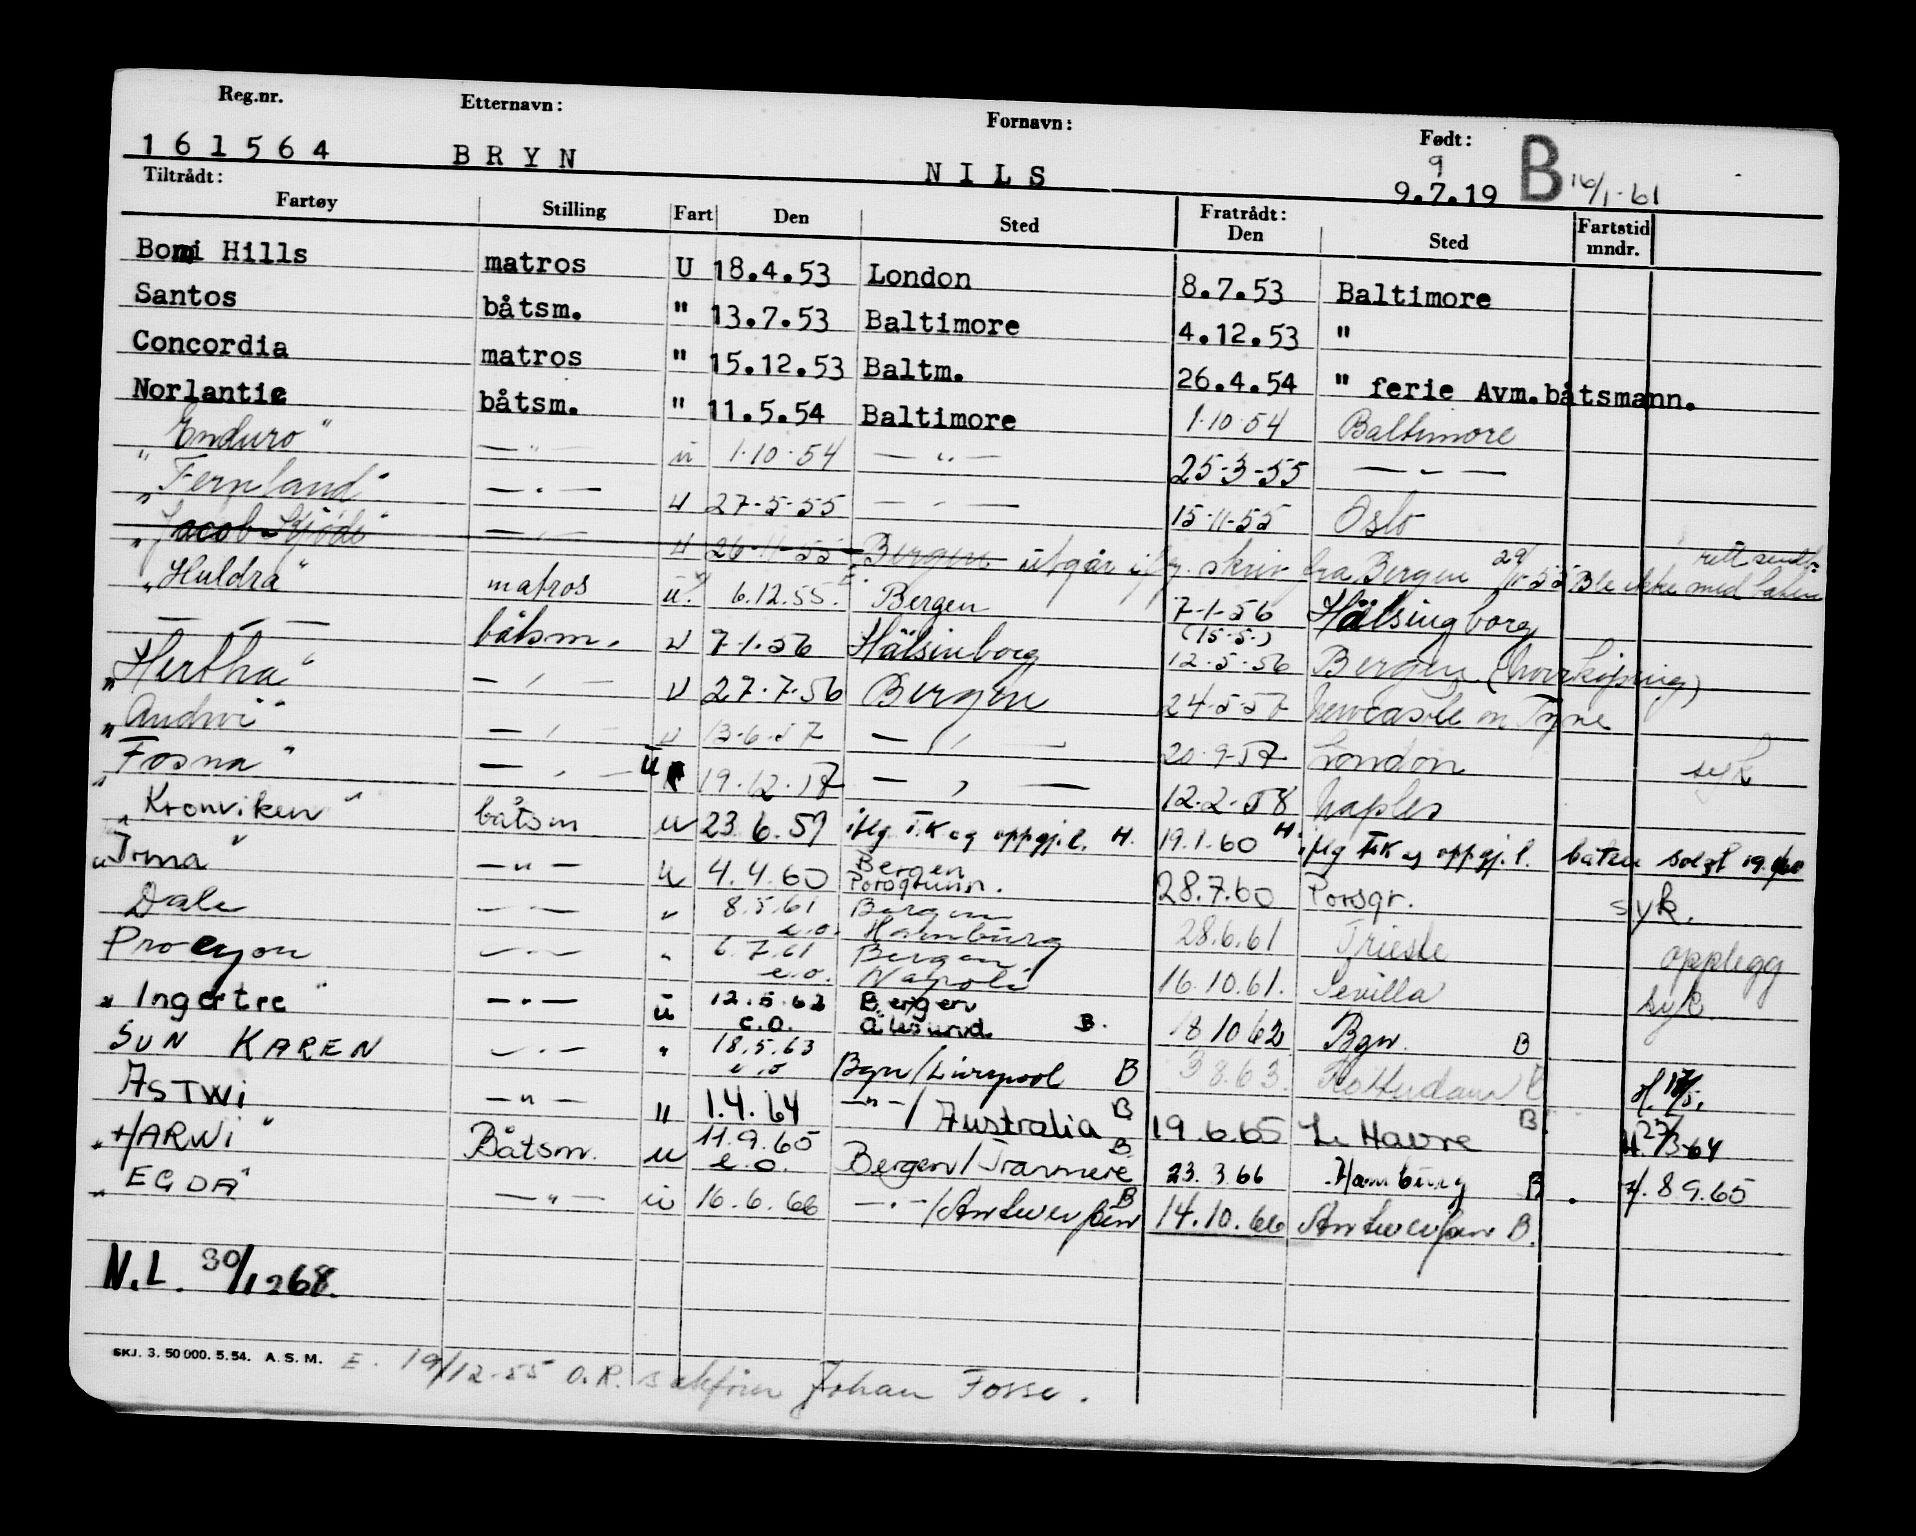 Reg.nr. Etternavn: Fornavn: Født:
161564 BRYN NILS 9.7.19 9 B 16/1-61
Tiltrådt: Fratrådt:
Fartøy Stilling Fart Den Sted Den Sted Fartstid mndr.
Bomi Hills matros U 18.4.53 London 8.7.53 Baltimore
Santos båtsm. " 13.7.53 Baltimore 4.12.53 "
Concordia matros " 15.12.53 Baltm. 26.4.54 " ferie Avm.båtsmann.
Norlantic båtsm. " 11.5.54 Baltimore 1.10.54 Baltimore
"Enduro" — " — u 1.10.54 — " — 25-3-55 — " —
"Fernland" — " — u 27-5-55 — " — 15-11-55 Oslo
"Jacob Kjöde" — " — u 26-11-55 Bergen utgår iflg. skriv fra Bergen 29/11-55 Ble ikke med båten
"Huldra" matros u. 6.12.55. Bergen 7-1-56 Hälsingborg
— " — båtsm. u 7-1-56 Hälsinborg (15-5-) 12-5-56 Bergen (Norrköping)
"Hertha" — " — u 27-7-56 Bergen 24-5-57 Newcasle on Tyne
"Andwi" — " — u 13-6-57 — " — 20-9-57 London syk
"Fosna" — " — u 19.12.57 — " — 12.2.58 Naples
"Kronviken" båtsm u 23.6.59 iflg T.K og oppgj.l. H. 19.1.60 H. iflg T.K og oppgj.l. båten solgt 19.1/60
"Irma" — " — u 4.4.60 Bergen Porsgrunn. 28.7.60 Porsgr. syk.
Dale — " — " 8.5.61 e.o. Bergen Hamburg 28.6.61 Trieste opplegg
Procyon — " — " 6.7.61 e.o. Bergen Napoli 16.10.61. Sevilla syk
"Ingertre" — " — u 12.5.62 e.o. Bergen Ålesund. B. 18.10.62 Bgn. B
SUN KAREN — " — " 18.5.63 e.o Bgn/Liverpool B 3.8.63. Rotterdam B H. 17/5.
ASTWI — " — " 1.4.64 — " — / Australia B 19.6.65 Le Havre B. H 23/3-64
"HARWI" Båtsm. u 11.9.65 e.o. Bergen/Tranmere B. 23.3.66 Hamburg B . H. 8.9.65
"EGDA" — " — u 16.6.66 — " — /Antwerpen B 14.10.66 Antwerpen B.
N.L. 30/12 68.
SKJ. 3. 50 000. 5.54. A. S. M. E. 19/12-55 O.R. sakfører Johan Fosse.